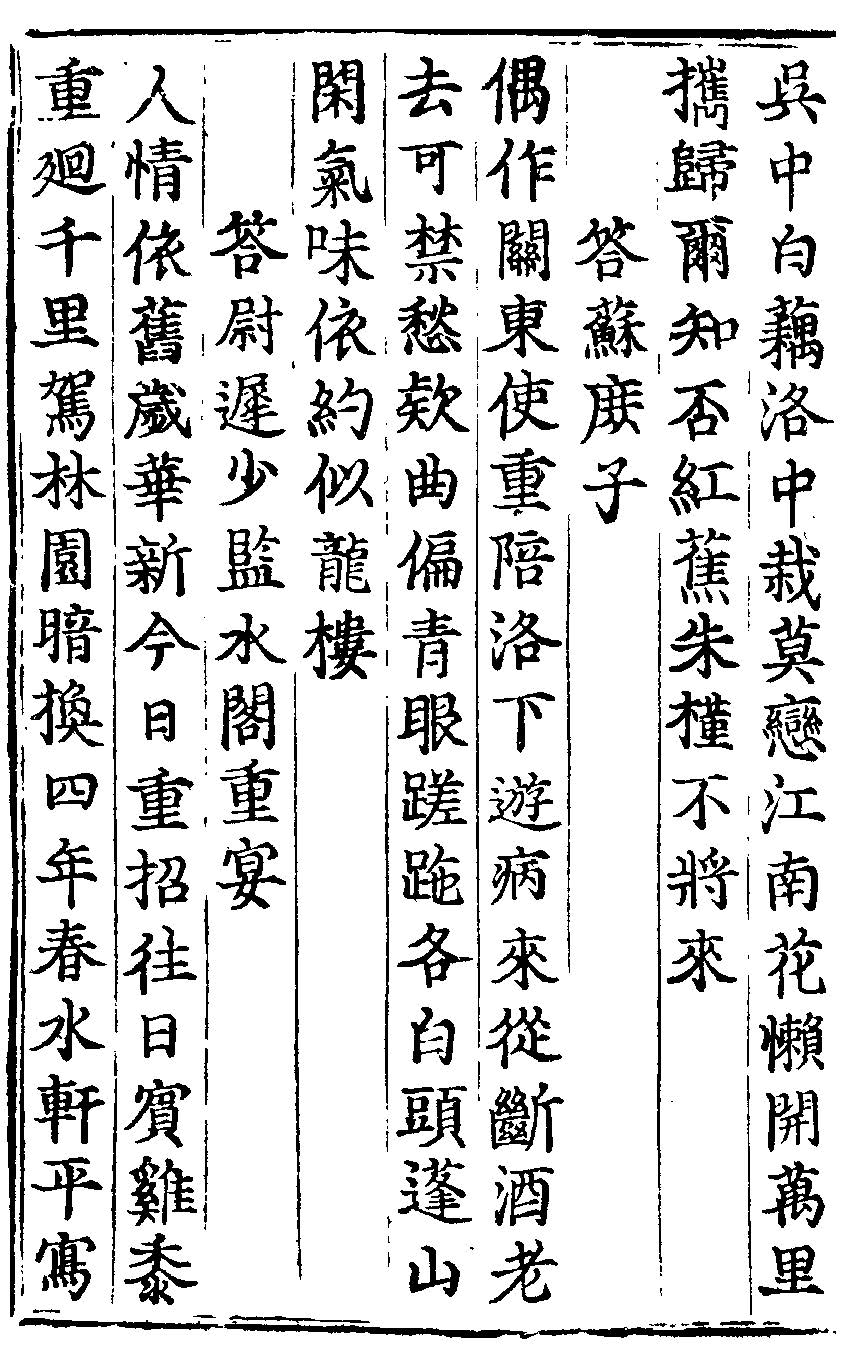 吳中白藕洛中栽莫戀江南花懶開萬里
攜歸爾知否紅蕉朱槿不將來
答蘇庶子
偶作關東使重陪洛下遊病來從斷酒老
去可禁愁欵曲偏青眼蹉跎各白頭蓬山
閑氣味依約似龍樓
答尉遲少監水閣重宴
人情依舊歲華新今日重招往日賓雞黍
重廻千里駕林園暗換四年春水軒平寫